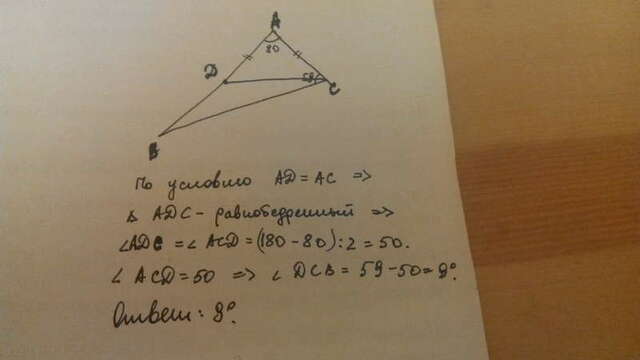 A
80
D
59
C
B
По условию AD = AC =>
△ ADC - равнобедренный =>
∠ADC = ∠ ACD = (180 - 80) : 2 = 50.
∠ ACD = 50 => ∠ DCB = 59 - 50 = 9°.
Ответ: 9°.